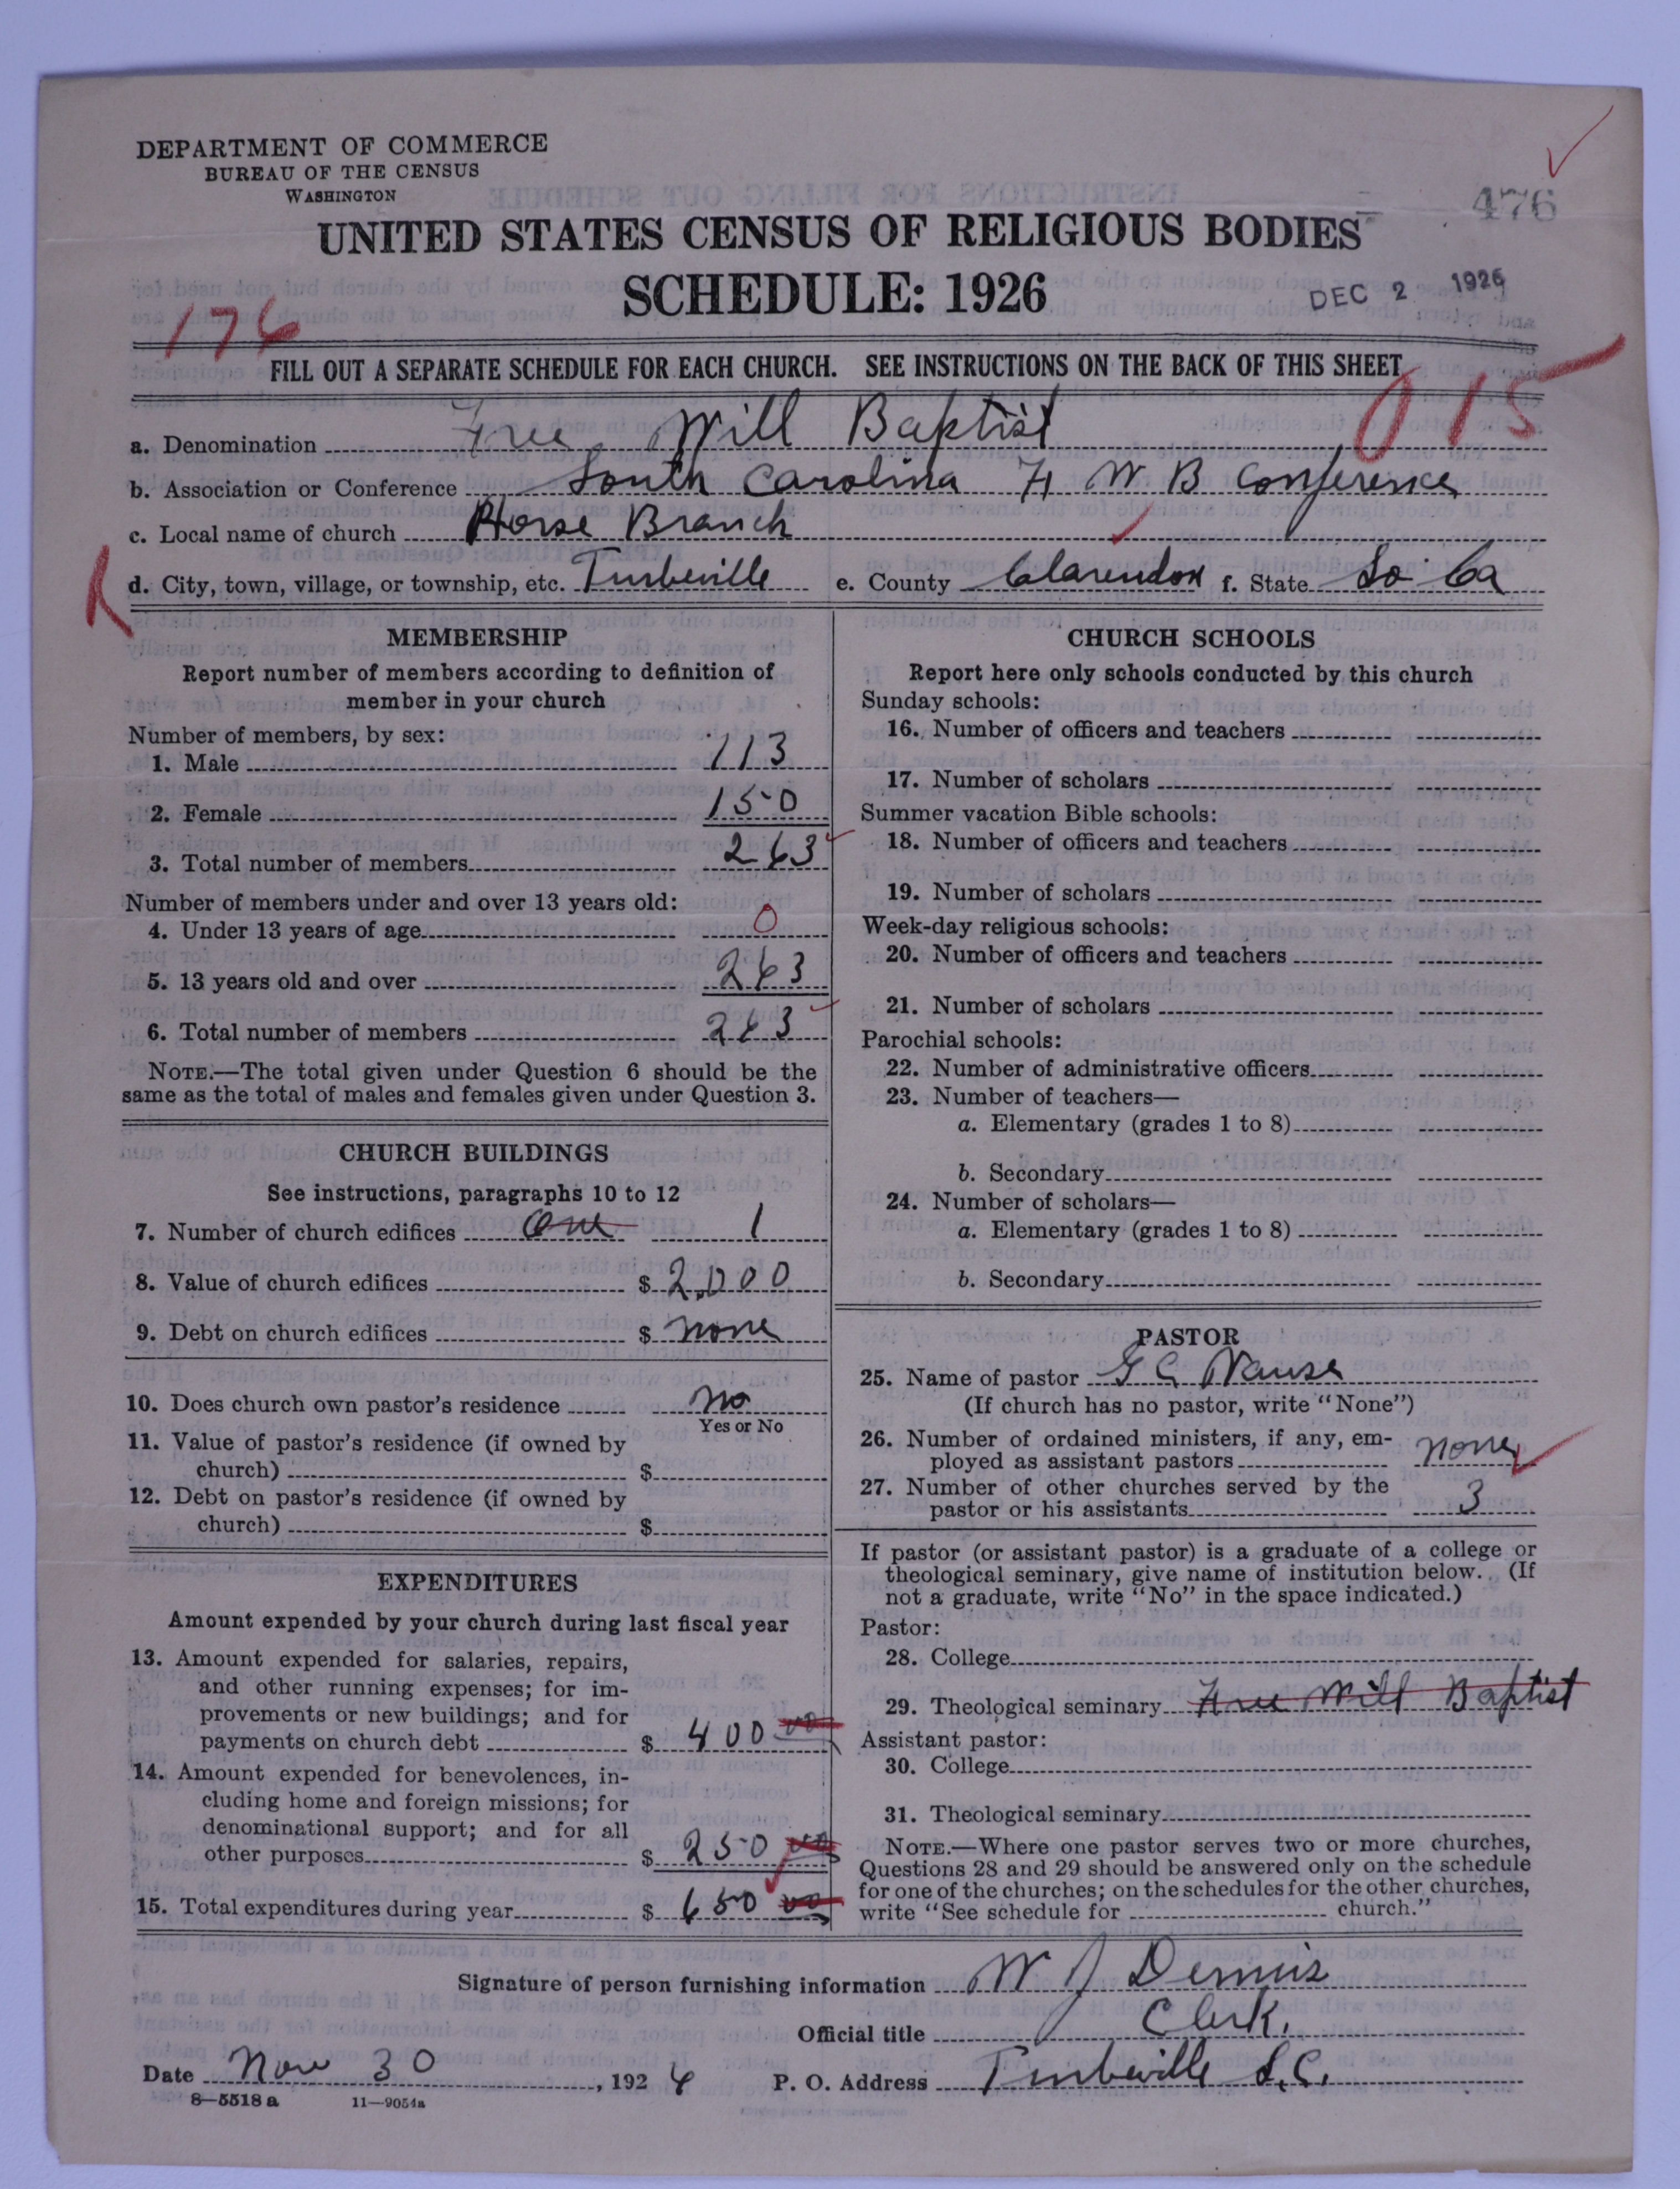 DEPARTMENT OF COMMERCE
BUREAU OF THE CENSUS
WASHINGTON
476
UNITED STATES CENSUS OF RELIGIOUS BODIES
SCHEDULE: 1926
DEC 2 1926
176
FILL OUT A SEPARATE SCHEDULE FOR EACH CHURCH. SEE INSTRUCTIONS ON THE BACK OF THIS SHEET
015
a. Denomination Free Will Baptist
b. Association or Conference South Carolina F W B Conference
c. Local name of church Horse Branch
d. City, town, village, or township, etc. Turbeville e. County Clarendon f. State So Ca
MEMBERSHIP
Report number of members according to definition of
member in your church
Number of members, by sex:
1. Male 113
2. Female 150
3. Total number of members 263
Number of members under and over 13 years old:
4. Under 13 years of age 0
5. 13 years old and over 263
6. Total number of members 263
NOTE.—The total given under Question 6 should be the
same as the total of males and females given under Question 3.
CHURCH BUILDINGS
See instructions, paragraphs 10 to 12
7. Number of church edifices One 1
8. Value of church edifices $ 2,000
9. Debt on church edifices $ none
10. Does church own pastor's residence no
Yes or No
11. Value of pastor's residence (if owned by
church) $
12. Debt on pastor's residence (if owned by
church) $
EXPENDITURES
Amount expended by your church during last fiscal year
13. Amount expended for salaries, repairs,
and other running expenses; for im-
provements or new buildings; and for
payments on church debt $ 400 00
14. Amount expended for benevolences, in-
cluding home and foreign missions; for
denominational support; and for all
other purposes $ 250 00
15. Total expenditures during year $ 650 00
CHURCH SCHOOLS
Report here only schools conducted by this church
Sunday schools:
16. Number of officers and teachers
17. Number of scholars
Summer vacation Bible schools:
18. Number of officers and teachers
19. Number of scholars
Week-day religious schools:
20. Number of officers and teachers
21. Number of scholars
Parochial schools:
22. Number of administrative officers
23. Number of teachers—
a. Elementary (grades 1 to 8)
b. Secondary
24. Number of scholars—
a. Elementary (grades 1 to 8)
b. Secondary
PASTOR
25. Name of pastor G C Vause
(If church has no pastor, write "None")
26. Number of ordained ministers, if any, em-
ployed as assistant pastors none
27. Number of other churches served by the
pastor or his assistants 3
If pastor (or assistant pastor) is a graduate of a college or
theological seminary, give name of institution below. (If
not a graduate, write "No" in the space indicated.)
Pastor:
28. College
29. Theological seminary Free Will Baptist
Assistant pastor:
30. College
31. Theological seminary
NOTE.—Where one pastor serves two or more churches,
Questions 28 and 29 should be answered only on the schedule
for one of the churches; on the schedules for the other churches,
write "See schedule for church."
Signature of person furnishing information W J Dennis
Official title Clerk.
Date Nov 30, 1926 P. O. Address Turbeville S.C.
8—5518 a 11—9054a